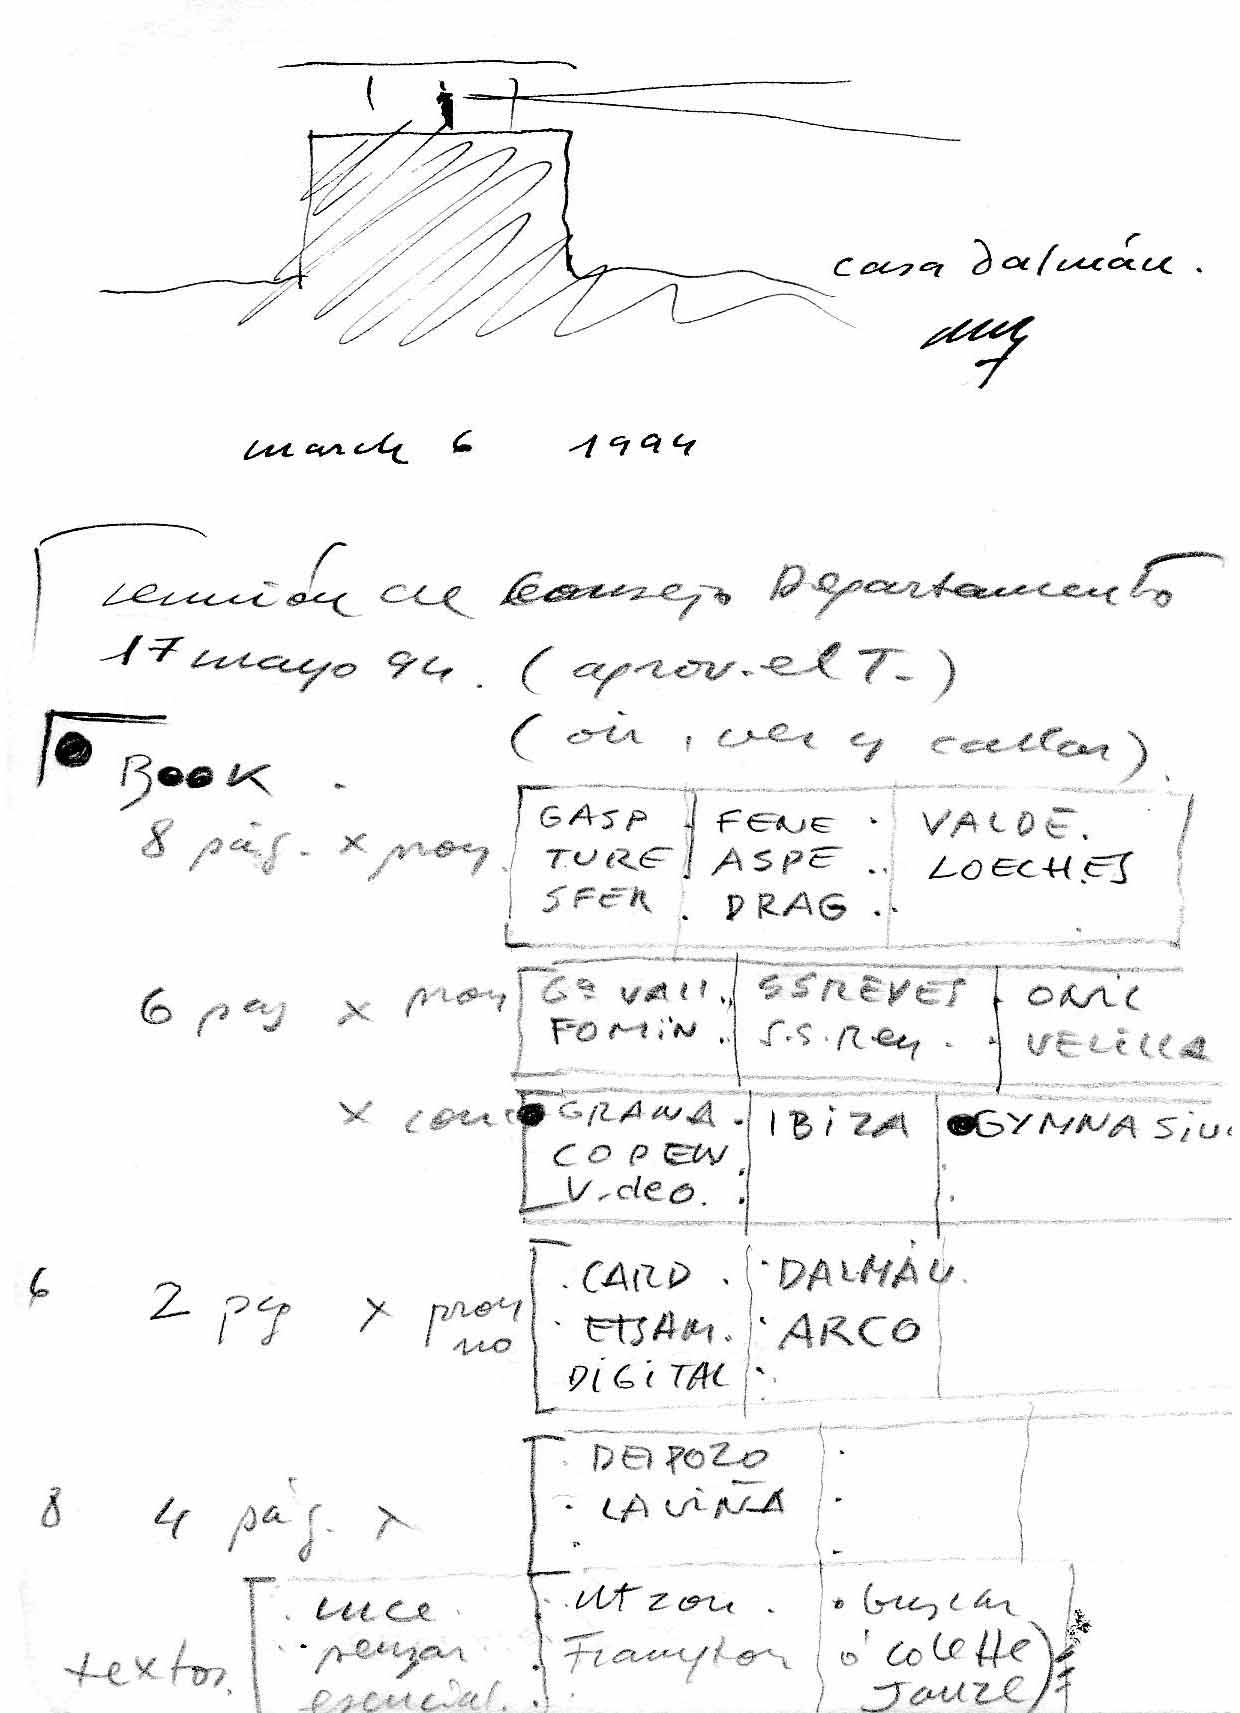 casa Dalmáu.
march 6 1994
reunión de Consejo Departamento
17 mayo 94. (aprov. el T.)
(oir, ver y callar).
Book.
8 pág. x proy. GASP FENE VALDE.
TURE ASPE LOECHES
SFER DRAG
6 pag x proy Gª VALL. SSREYES ONIL
FOMIN S.S. Rey. VELILLA
x conc GRANA. IBIZA GYMNASIU
COPEN
Video.
6 2 pag x proy CARD. DALMÁU.
no ETSAM. ARCO
DIGITAL
8 4 pág. x DELPOZO
LA VIÑA
textos. luce. Utzon. buscar
penzar Frampton o colette
esencial. Jauze)